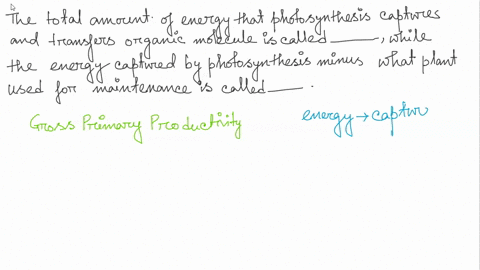 The total amount of energy that photosynthesis captures
and transfers organic molecule is called ______, while
the energy captured by photosynthesis minus what plant
used for maintenance is called ____.
Gross Primary Productivity energy → captur